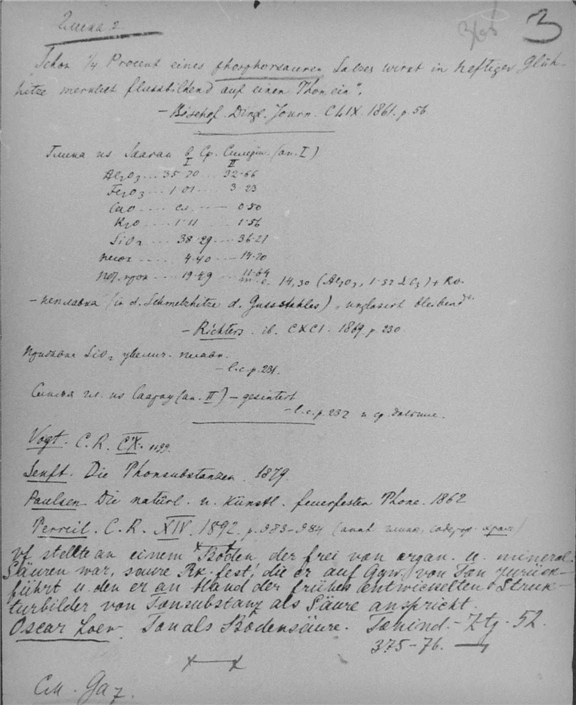 Глина 2
3
Schon 1/4 Procent eines phosphorsauren Salzes wirkt in heftiger Glüh-
hitze merklich flussbildend auf einen Thon ein".
— Bischof. Dingl. Journ. CLIX. 1861. p. 56
Глина из Saarau и Ср. Силезии (ан. I)
I II
Al2O3 ... 35·70 ... 32·66
Fe2O3 ... 1·01 ... 3·23
CaO ... ... 0·50
K2O ... 1·11 1·56
SiO2 ... 38·29 ... 36·21
песок ... 4·40 ... 14·70
Пот. прок ... 19·49 11·04
— неплавка (in d. Schmelzhitze d. Gussstahles) „unglasirt bleibend".
— Richters. ib. CXCI. 1869 p. 230
SiO2 увелич. плавк.
— l.c. p. 231.
гл. из Саарау (ан. II) — gesintert
— l.c. p. 232 и ср. дальше.
Vogt. C. R. CX. 1199.
Senft. Die Thonsubstanzen. 1879.
Paulsen. Die natürl. u. künstl. feuerfesten Thone. 1862
C. R. XIV. 1892. p. 983–984 (анал. глин, содерж.
Vf stellte an einem Boden der frei von organ. u. mineral.
Säuren war, saure Rk. fest, die er auf Ggw. von Ton zurück-
führt u. den er an Hand der früher entwickelten Struk-
turbilder von Tonsubstanz als Säure anspricht.
Oscar Loew. Ton als Bodensäure. Ztg. 52.
375–76.
См. Gaz.